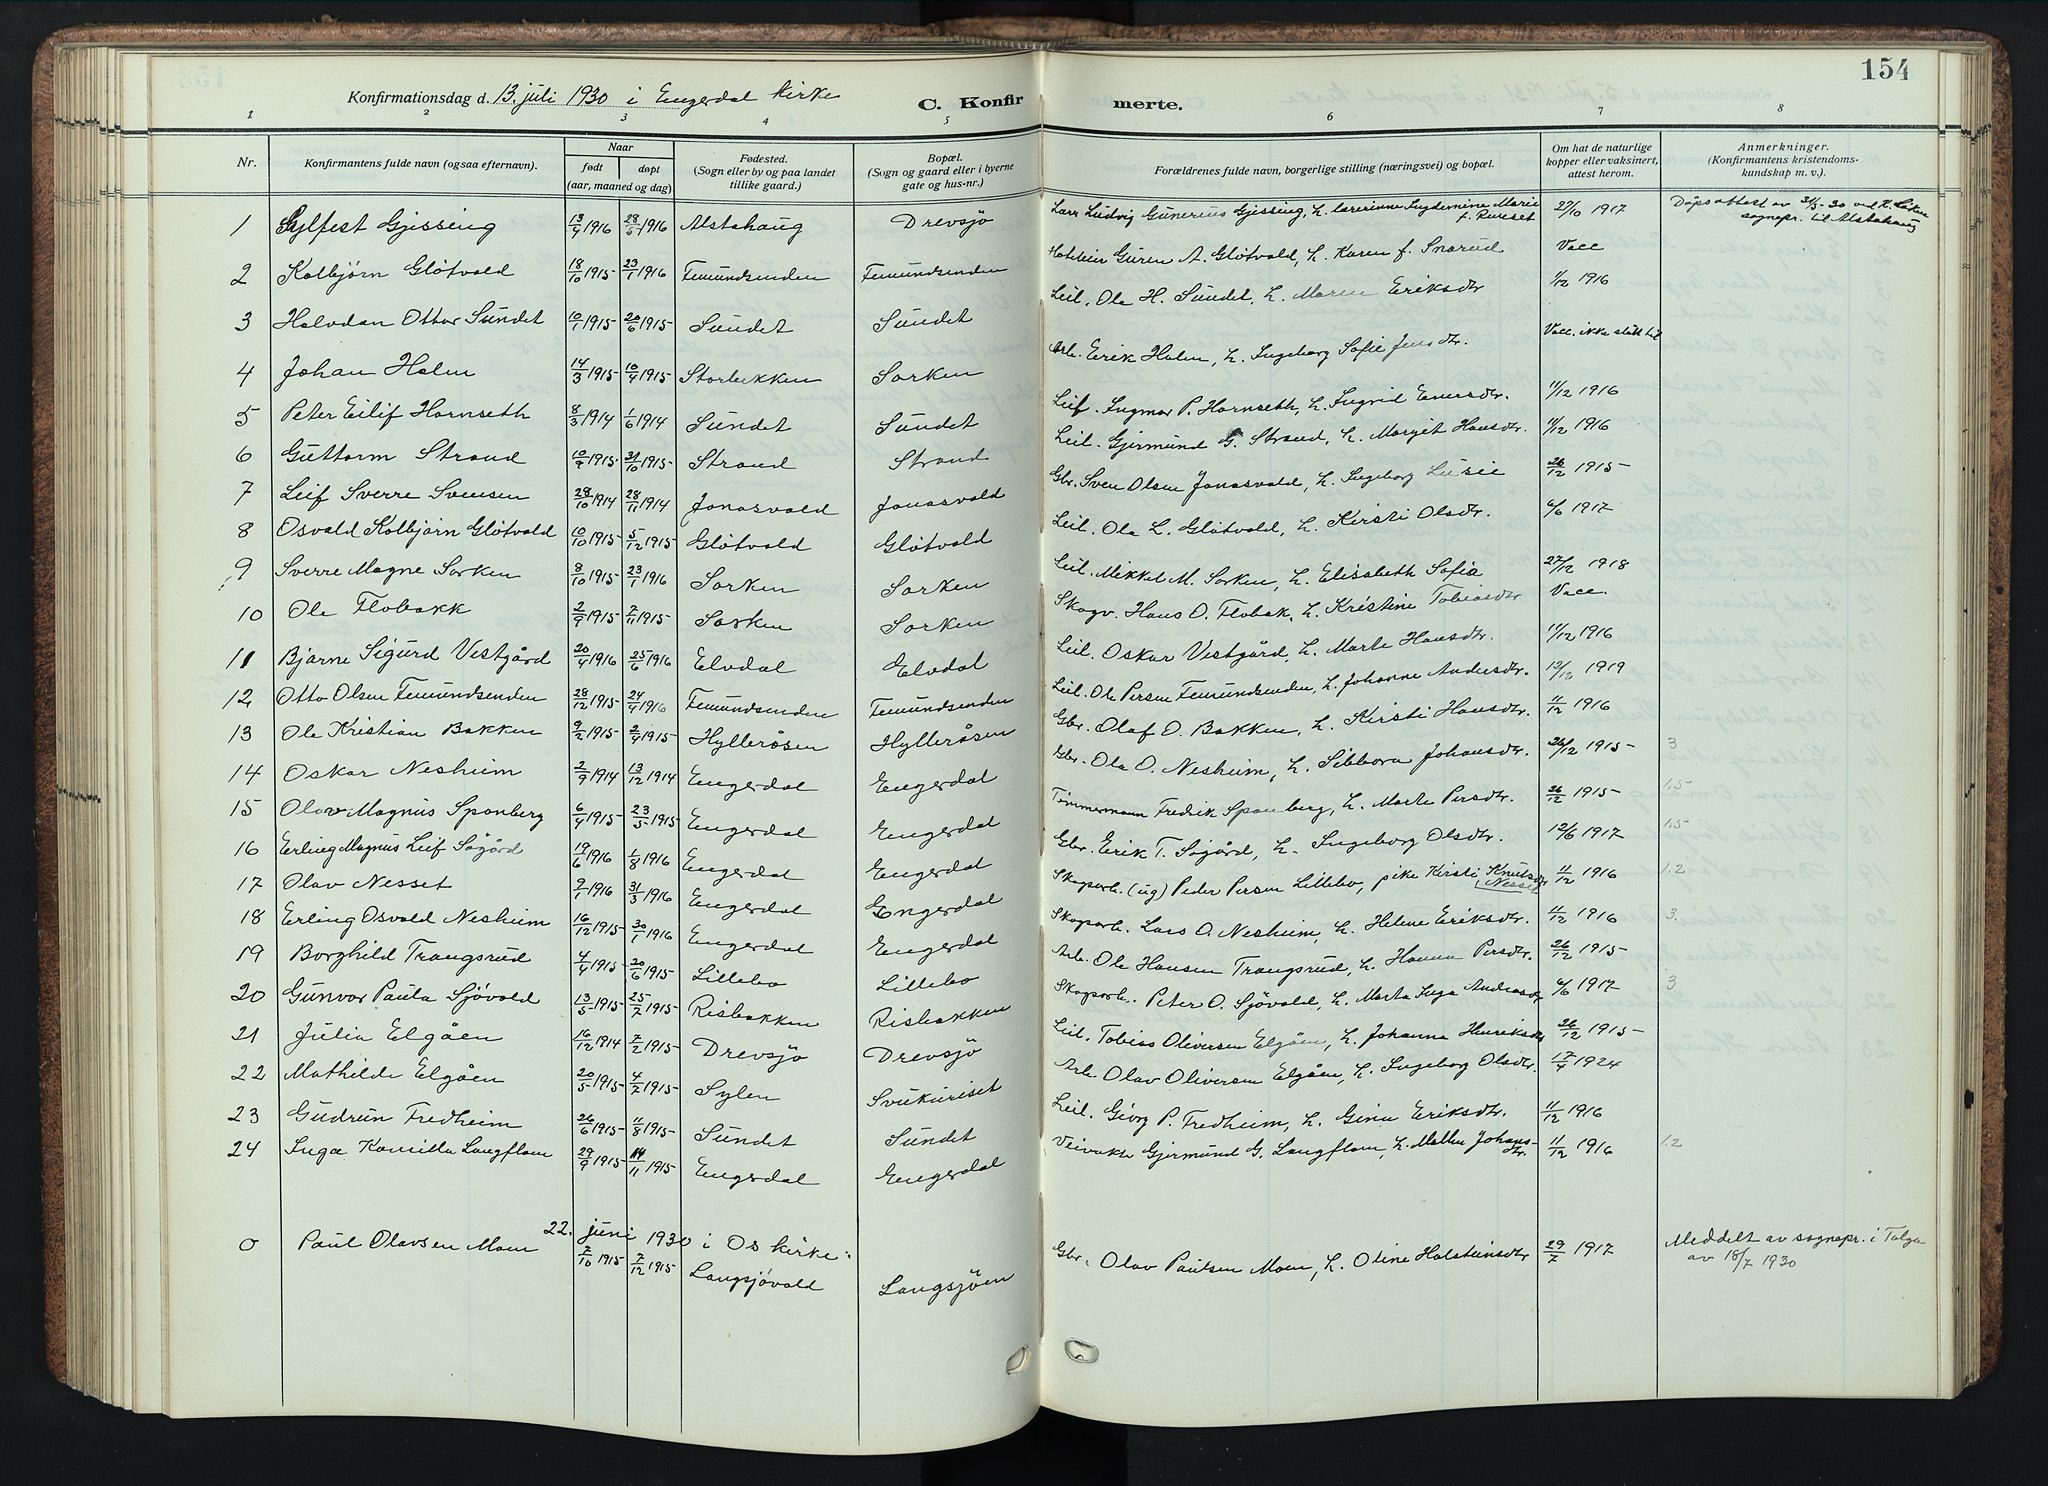 154
Konfirmationsdag d. 13. juli 1930 i Engerdal kirke C. Konfirmerte.
1 2 3 4 5 6 7 8
Nr. Konfirmantens fulde navn (ogsaa efternavn). Naar født døpt (aar, maaned og dag) Fødested. (Sogn eller by og paa landet tillike gaard.) Bopæl. (Sogn og gaard eller i byerne gate og hus-nr.) Forældrenes fulde navn, borgerlige stilling (næringsvei) og bopæl. Om hat de naturlige kopper eller vaksinert, attest herom. Anmerkninger. (Konfirmantens kristendoms-kundskap m. v.).
1 Sylfest Gjessing 13/4 1916 28/5 1916 Alstahaug Drevsjø Lærer Ludvig Gunerius Gjessing, h. lærerinne Ingdemine Marie f. 27/10 1917 Dåpsattest av 31/5-30 ved sognepr. til Alstahaug
2 Kolbjørn Gløtvold 18/10 1915 23/1 1916 Femundsenden Femundsenden Guren A. Gløtvold, h. Karen f. Snarud Vacc
3 Halvdan Ottar Sundet 10/1 1915 20/6 1915 Sundet Sundet Leil. Ole H. Sundet, h. Maren Eriksdtr 1/12 1916
4 Johan Holm 14/3 1915 10/4 1915 Storbekken Sorken Arb. Erik Holm, h. Ingeborg Sofie Jensdtr. Vacc. ikke slått til
5 Peter Eilif Hornseth 8/3 1914 1/6 1914 Sundet Sundet Leil. Ingmar P. Hornseth, h. Ingrid Eversdtr. 11/12 1916
6 Guttorm Strand 10/9 1915 31/10 1915 Strand Strand Leil. Gjermund G. Strand, h. Margit Hansdtr. 11/12 1916
7 Leif Sverre Svensen 28/10 1914 28/11 1914 Jonasvold Jonasvold Gbr. Sven Olsen Jonasvold, h. Ingeborg Lusie 26/12 1915
8 Osvald Kolbjørn Gløtvold 10/10 1915 5/12 1915 Gløtvold Gløtvold Leil. Ole L. Gløtvold, h. Kirsti Olsdtr. 6/6 1917
9 Sverre Magne Sorken 8/10 1915 23/1 1916 Sorken Sorken Leil. Mikkel M. Sorken, h. Elisabeth Sofia 27/12 1918
10 Ole Flobakk 2/9 1915 7/11 1915 Sorken Sorken Skogv. Hans O. Flobak, h. Kristine Tobiasdtr Vacc.
11 Bjarne Sigurd Vestgård 20/4 1916 25/6 1916 Elvdal Elvdal Leil. Oskar Vestgård, h. Marte Hansdtr. 11/12 1916
12 Otto Olsen Femundsenden 28/12 1915 24/4 1916 Femundsenden Femundsenden Leil. Ole Persen Femundsenden, h. Johanne Andersdtr. 12/12 1919
13 Ole Kristian Bakken 9/2 1915 2/4 1915 Hylleråsen Hylleråsen Gbr. Olaf O. Bakken, h. Kirsti Hansdtr. 11/12 1916
14 Oskar Nesheim 2/9 1914 13/12 1914 Engerdal Engerdal Gbr. Ole O. Nesheim, h. Sibbora Johansdtr. 26/12 1915 3
15 Olav Magnus Sponberg 6/4 1915 23/5 1915 Engerdal Engerdal Tømmermann Fredrik Sponberg, h. Marte Persdtr. 26/12 1915 1.5
16 Erling Magnus Leif Søgård 19/6 1916 1/8 1916 Engerdal Engerdal Gbr. Erik T. Søgård, h. Ingeborg Olsdtr. 12/6 1917 1.5
17 Olav Nesset 9/1 1916 31/3 1916 Engerdal Engerdal Skogarb. (ug) Peder Persen Lillebo, pike Kirsti Knutsdtr Nesset 11/12 1916 1.2
18 Erling Osvald Nesheim 16/12 1915 30/1 1916 Engerdal Engerdal Skogarb. Lars O. Nesheim, h. Helene Eriksdtr. 11/12 1916 3.
19 Borghild Trangsrud 4/4 1915 20/6 1915 Lillebo Lillebo Arb. Ole Hansen Trangsrud, h. Hanna Persdtr. 26/12 1915
20 Gunvor Paula Sjøvold 13/5 1915 25/7 1915 Risbakken Risbakken Skogarb. Peter O. Sjøvold, h. Marta Inga Andreasdtr 6/6 1917 3
21 Julia Elgåen 16/12 1914 7/2 1915 Drevsjø Drevsjø Leil. Tobias Oliversen Elgåen, h. Johanna Henriksdtr 26/12 1915
22 Mathilde Elgåen 20/5 1915 4/7 1915 Sylen Svukuriset Arb. Olav Oliversen Elgåen, h. Ingeborg Olsdtr. 17/4 1924
23 Gudrun Fredheim 26/6 1915 11/8 1915 Sundet Sundet Leil. Georg P. Fredheim, h. Gina Eriksdtr. 11/12 1916
24 Inga Kamilla Langflom 29/9 1915 14/11 1915 Engerdal Engerdal Veivokte Gjermund G. Langflom, h. Mallu Johans-dtr. 11/12 1916 1.2
22. juni 1930 i Os kirke:
0 Paul Olavsen Moen 7/10 1915 7/12 1915 Langsjøvold Langsjøen Gbr. Olav Paulsen Moen, h. Oline Halsteinsdtr 29/7 1917 Meddelt av sognepr. i Tolga av 18/7 1930